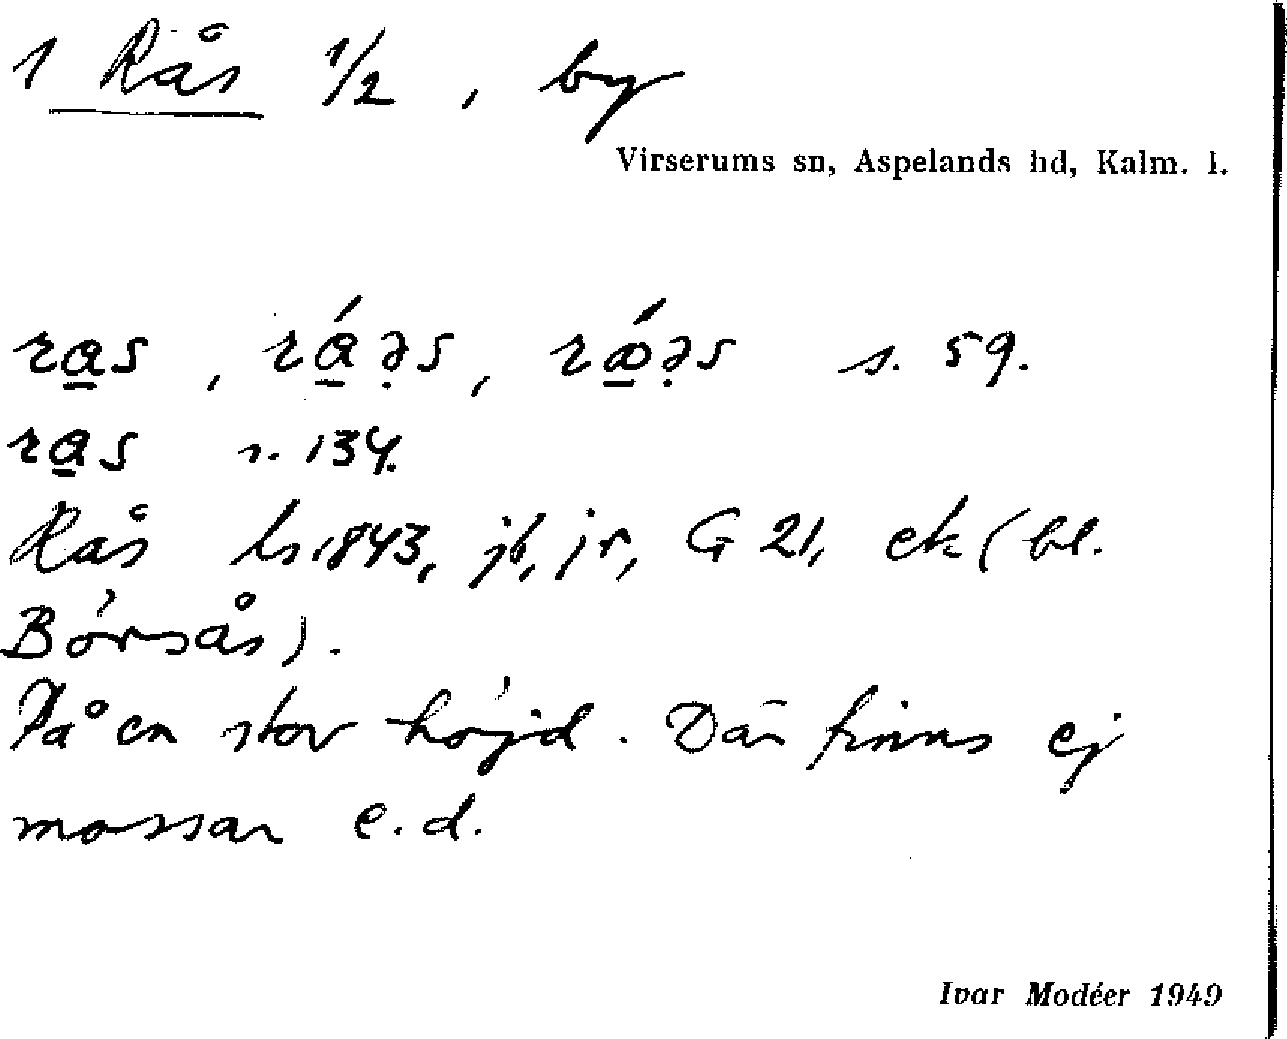 1 Rås 1/2, by
Virserums sn, Aspelands hd, Kalm. l.
ra̱s, rá̱ə̣s, rǽ̱ə̣s s. 59.
ra̱s s. 134.
Rås ls 1843, jb, jr, G 21, ek (bl.
Börsås).
På en stor höjd. Där finns ej
mossar e.d.
Ivar Modéer 1949